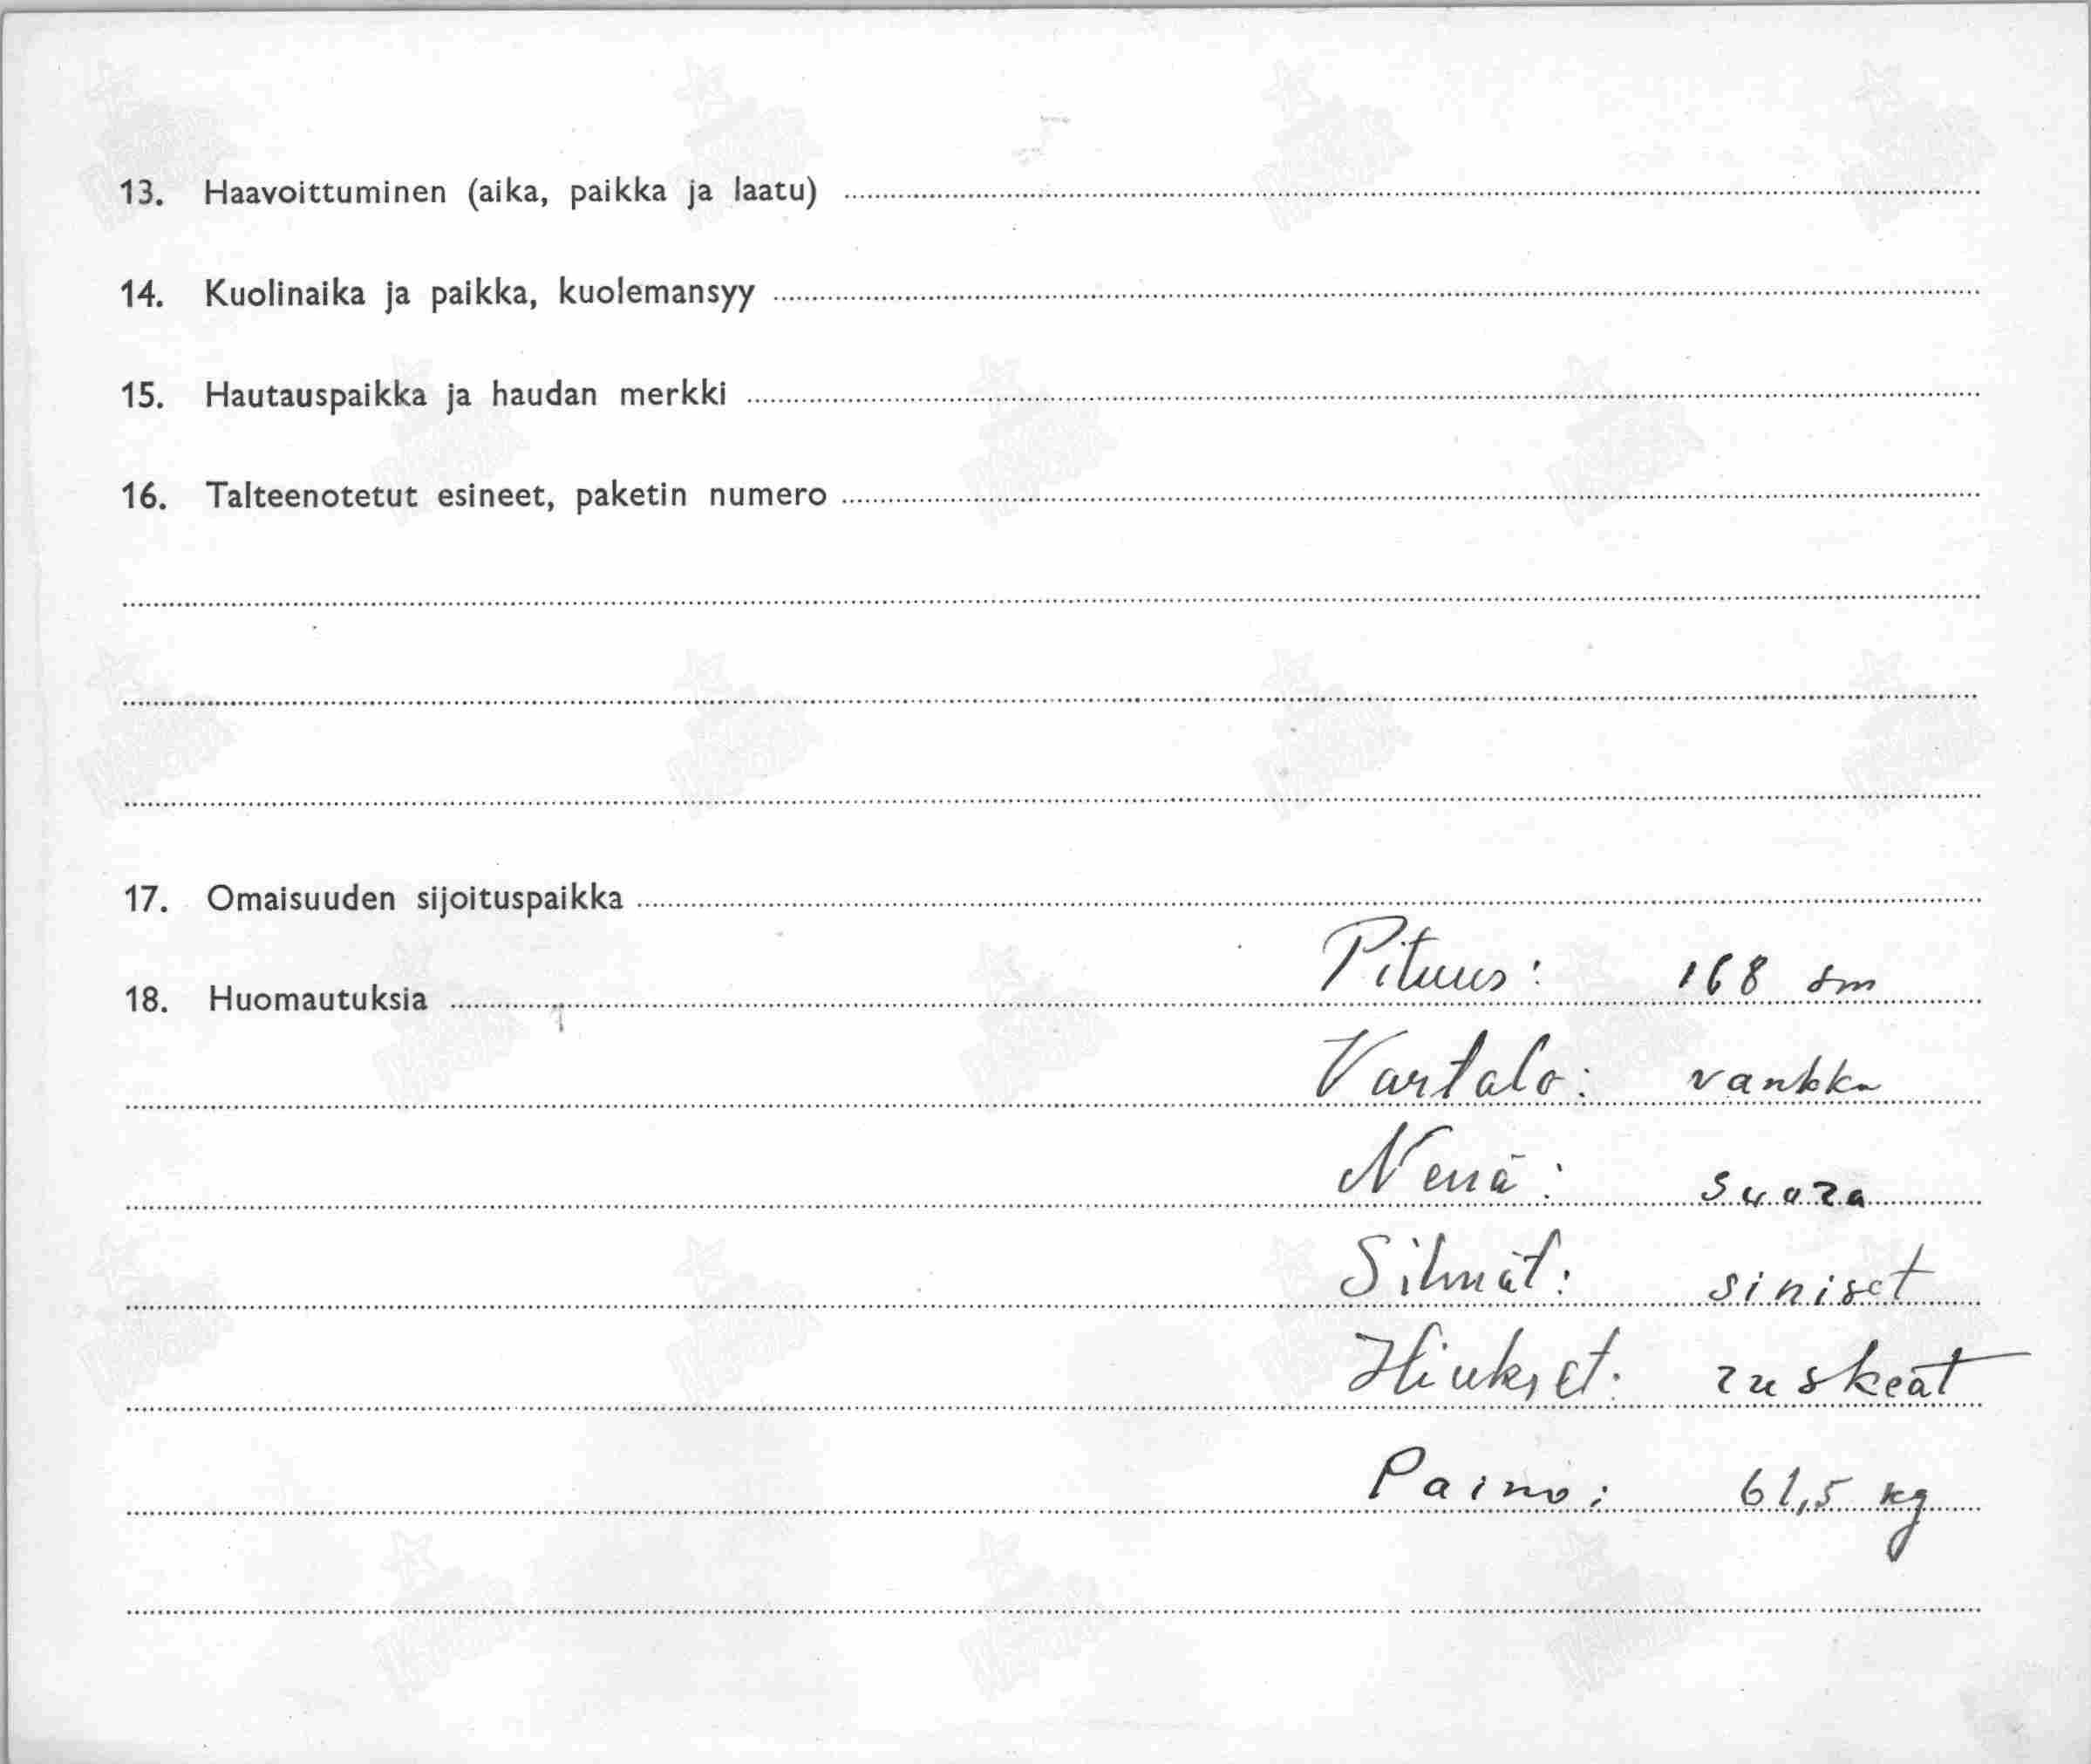 13. Haavoittuminen (aika, paikka ja laatu)
14. Kuolinaika ja paikka, kuolemansyy
15. Hautauspaikka ja haudan merkki
16. Talteenotetut esineet, paketin numero
17. Omaisuuden sijoituspaikka
18. Huomautuksia Pituus: 168 sm
Vartalo: vankka
Nenä: suora
Silmät: siniset
Hiukset: ruskeat
Paino: 61,5 kg